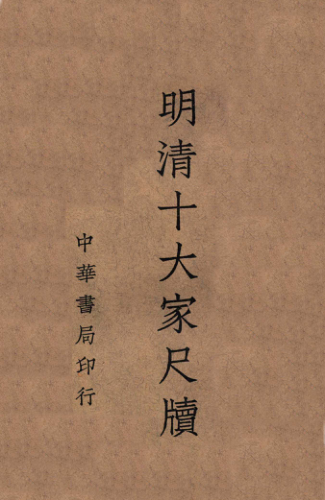 明清十大家尺牘
中華書局印行